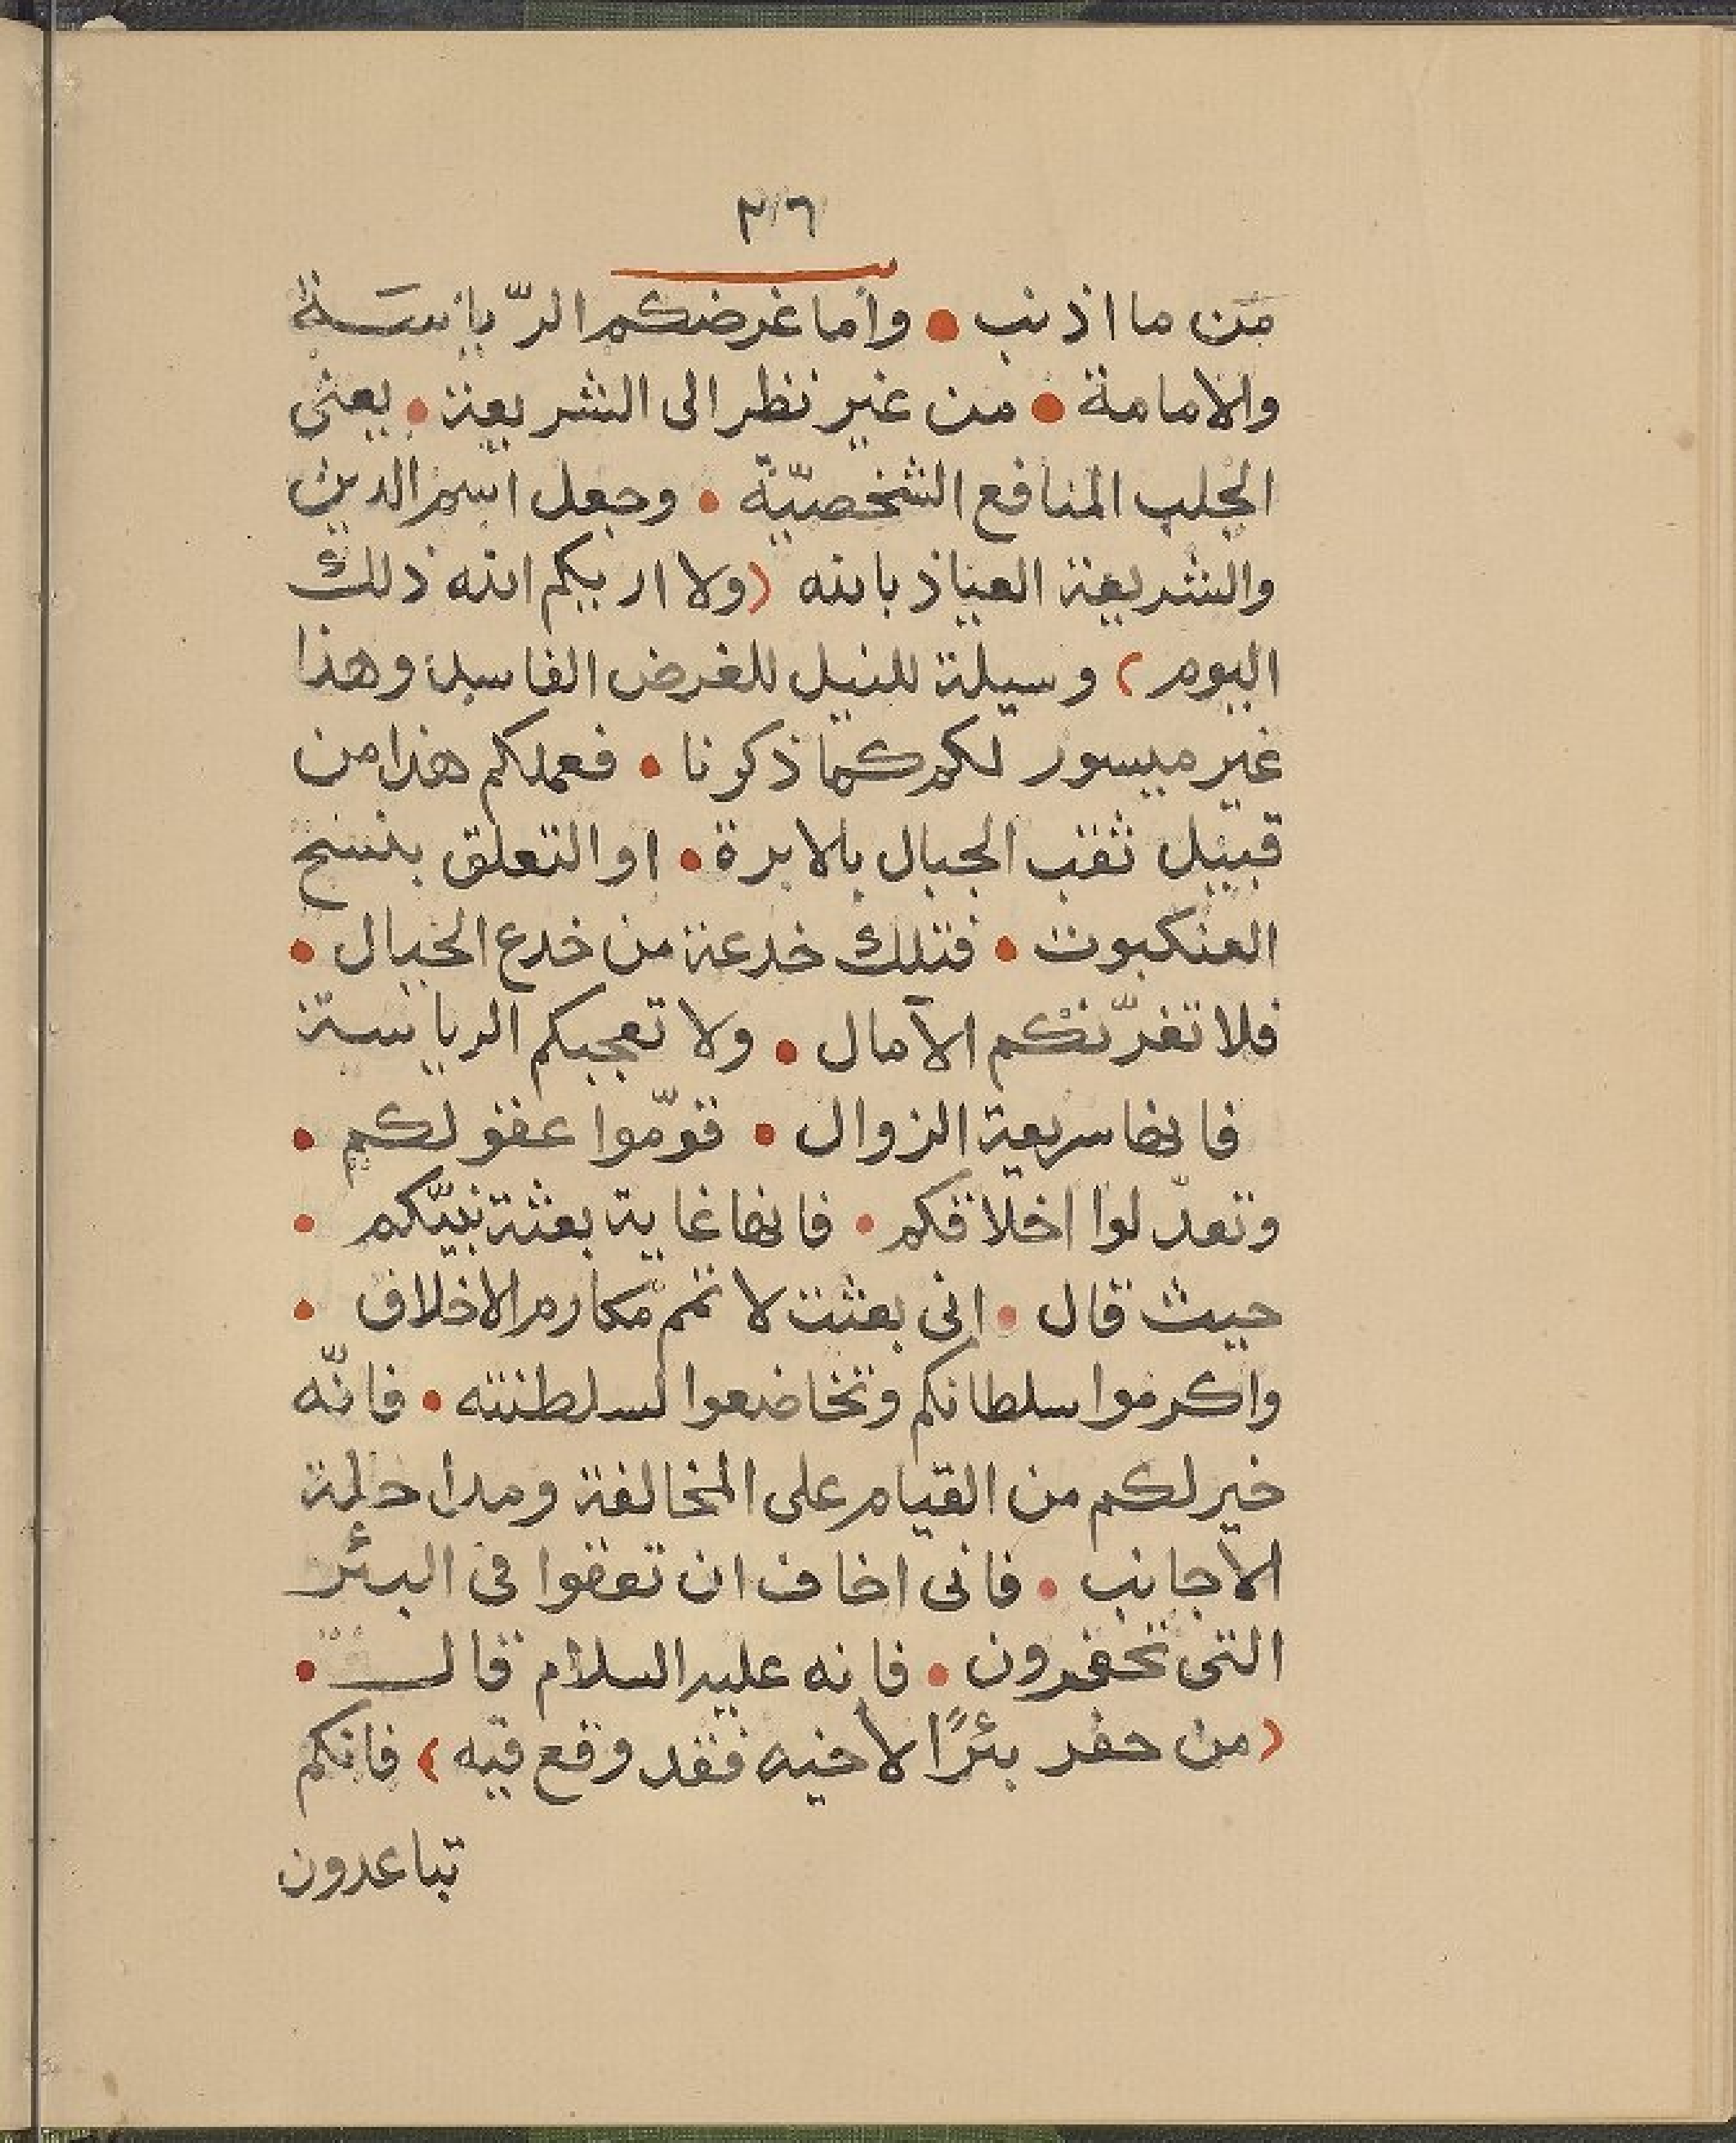 ٢٦
مَن ما اذنب • وأما غرضكم الرّياسَة
والامامة • من غير نظر الى الشريعة • يعنى
الجلب المنافع الشخصيّة • وجعل اسم الدين
والشريعة العياذ بالله (ولا اريكم الله ذلك
اليوم) وسيلة للنيل للغرض الفاسد وهذا
غير ميسور لكم كما ذكرنا • فعملكم هذا من
قبيل ثقب الجبال بالابرة • او التعلق بنسج
العنكبوت • فتلك خدعة من خدع الخيال •
فلا تغرّنكم الآمال • ولا تعجبكم الرياسة
فانها سريعة الزوال • قوّموا عقولكم •
وتعدّلوا اخلاقكم • فانها غاية بعثة نبيّكم •
حيث قال • انى بعثت لاتمم مكارم الاخلاق •
واكرموا سلطانكم وتخاضعوا لسلطنته • فانّه
خير لكم من القيام على المخالفة ومداخلة
الاجانب • فانى اخاف ان تعقوا فى البئر
التى تحفرون • فانه عليه السلام قال •
(من حفر بئرًا لأخيه فقد وقع فيه) فانكم
تباعدون